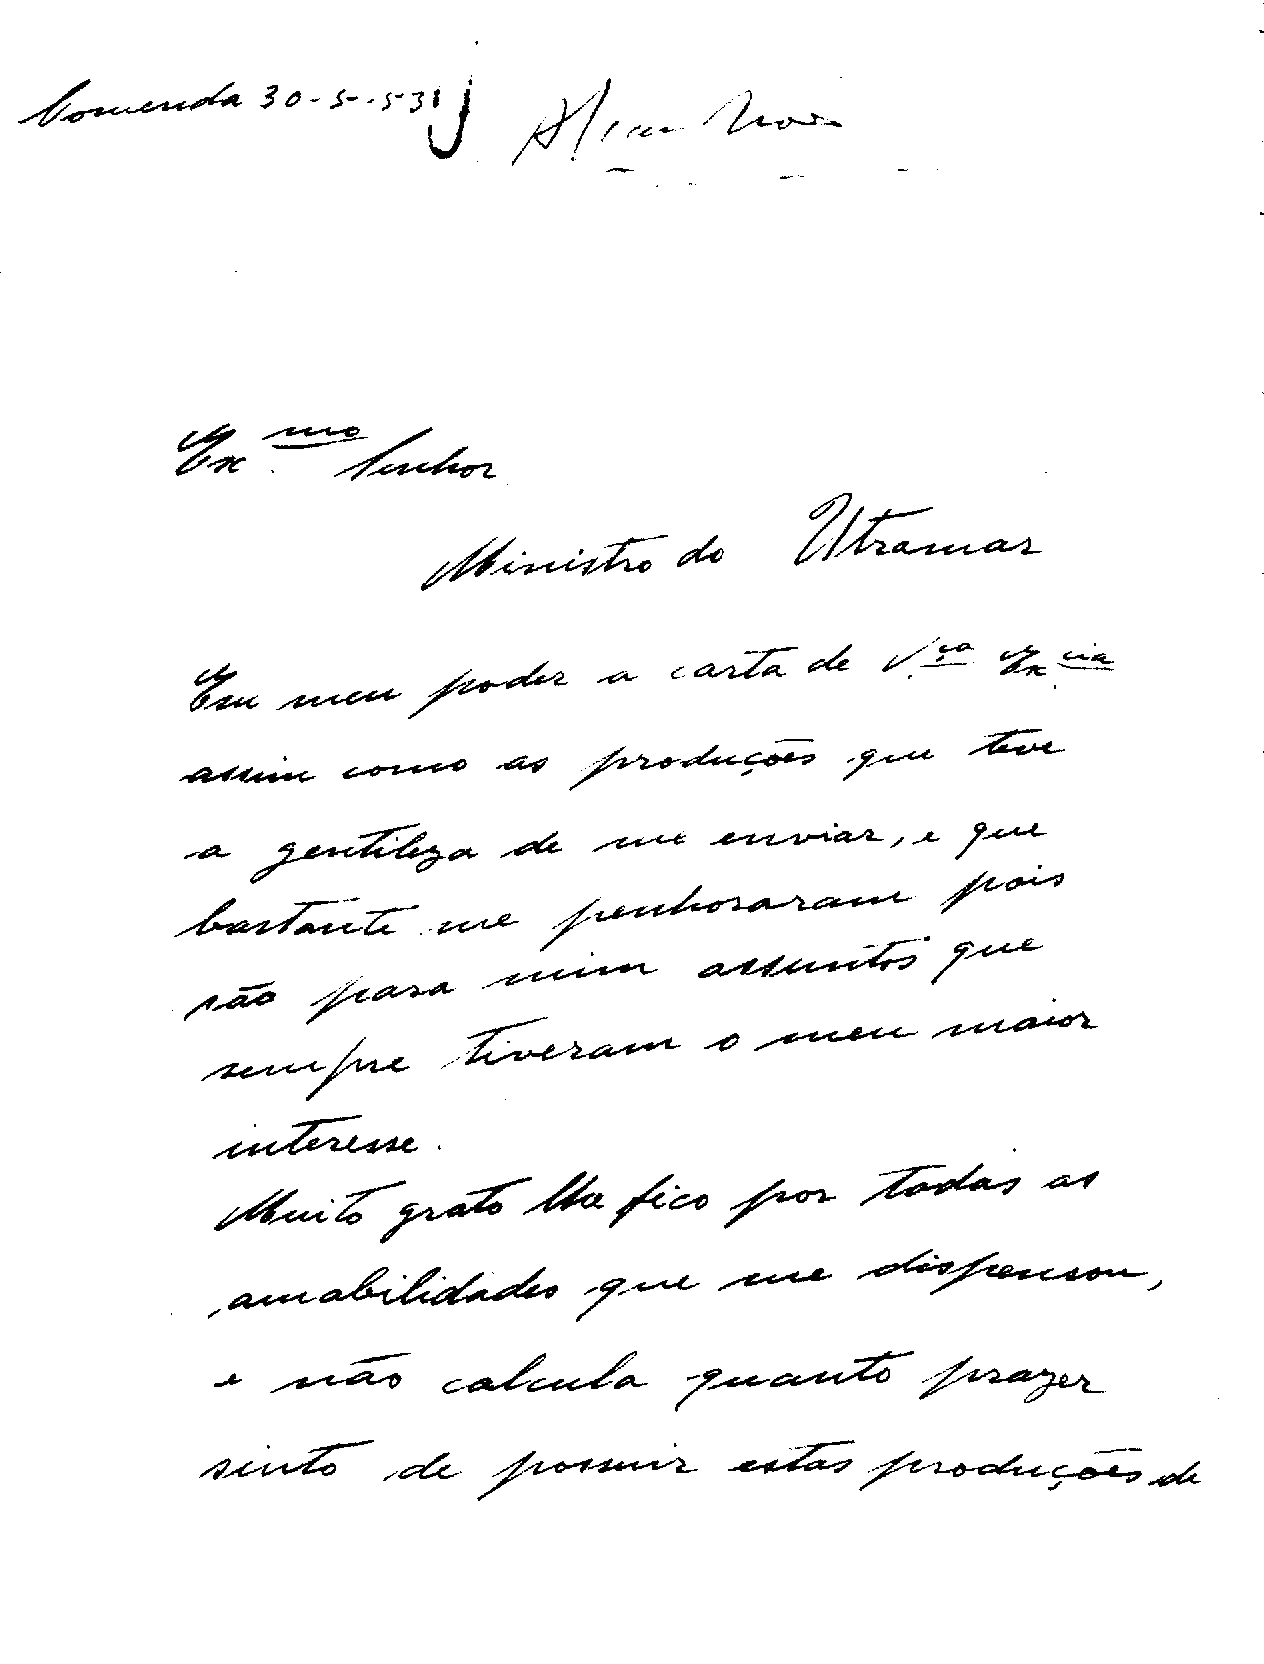 Comenda 30-5-53
Ex.mo Senhor
Ministro do Utramar
Em meu poder a carta de V.ra Ex.cia
assim como as produções que teve
a gentileza de me enviar, e que
bastante me penhoraram pois
são para mim assuntos que
sempre tiveram o meu maior
interesse.
Muito grato lhe fico por todas as
amabilidades que me dispensou,
e não calcula quanto prazer
sinto de possuir estas produções de